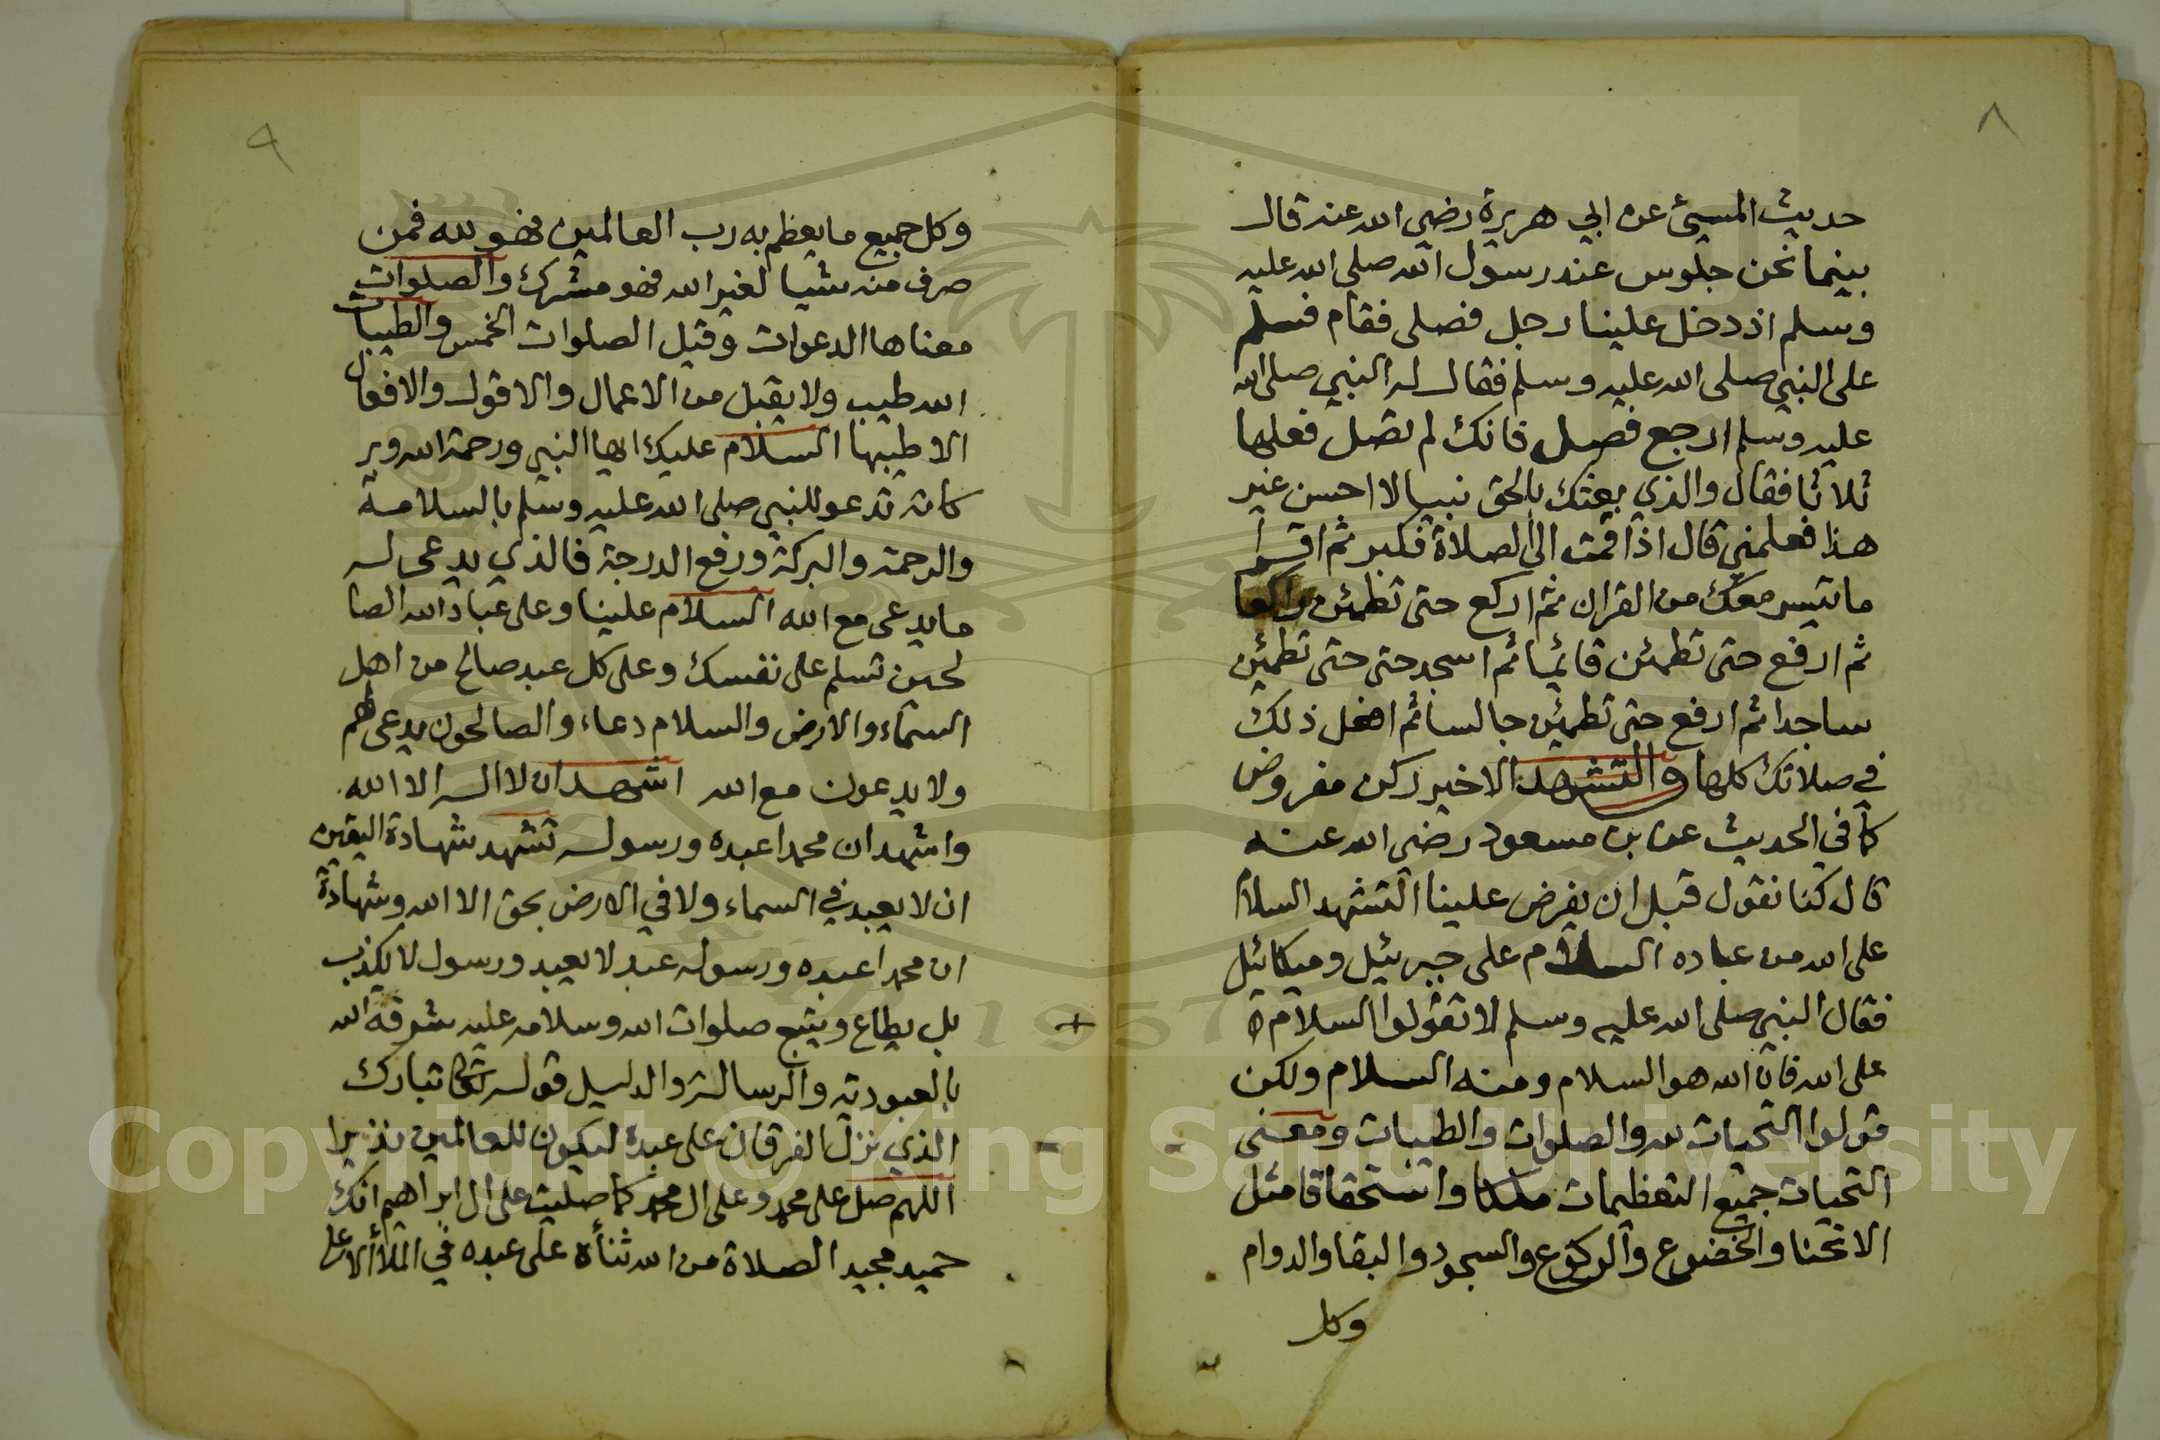 ٨
حديث المسيئ عن ابي هريرة رضي الله عنه قال
بينما نحن جلوس عند رسول الله صلى الله عليه
وسلم اذ دخل علينا رجل فصلى فقام فسلم
على النبي صلى الله عليه وسلم فقال له النبي صلى الله
عليه وسلم ارجع فصل فانك لم تصل فعلها
ثلاثا فقال والذي بعثك بالحق نبيا لا احسن غير
هذا فعلمني قال اذا قمت الى الصلاة فكبر ثم اقرا
ما تيسر معك من القران ثم اركع حتى تطمئن راكعا
ثم ارفع حتى تطمئن قائما ثم اسجد حتى حتى تطمئن
ساجدا ثم ارفع حتى تطمئن جالسا ثم افعل ذلك
في صلاتك كلها والتشهد الاخير ركن مفروض
كما في الحديث عن بن مسعود رضي الله عنه
قال كنا نقول قبل ان يفرض علينا التشهد السلام
على الله من عباده السلام على جبرئيل وميكائيل
فقال النبي صلى الله عليه وسلم لا تقولوا السلام
على الله فان الله هو السلام ومنه السلام ولكن
قولوا التحيات لله والصلوات والطيبات ومعنى
التحيات جميع التعظيمات ملكا واستحقاقا مثل
الانحنا والخضوع والركوع والسجود والبقا والدوام
وكل
٩
وكل جميع ما يعظم به رب العالمين فهو لله فمن
صرف منه شيا لغير الله فهو مشرك والصلوات
معناها الدعوات وقيل الصلوات الخمس والطيبات
الله طيب ولا يقبل من الاعمال والاقول والافعال
الا طيبها السلام عليك ايها النبي ورحمة الله وبر
كاته تدعو للنبي صلى الله عليه وسلم بالسلامة
والرحمة والبركة ورفع الدرجة فالذي يدعى له
ما يدعى مع الله السلام علينا وعلى عباد الله الصا
لحين تسلم على نفسك وعلى كل عبد صالح من اهل
السماء والارض والسلام دعاء والصالحون يدعى لهم
ولا يدعون مع الله اشهد ان لا اله الا الله
واشهد ان محمدا عبده ورسوله تشهد شهادة اليقين
ان لا يعبد في السماء ولا في الارض بحق الا الله وشهادة
ان محمدا عبده ورسوله عبد لا يعبد ورسول لا يكذب
بل يطاع ويتبع صلوات الله وسلامه عليه شرفه الله
بالعبودية والرسالة والدليل قوله تعالى تبارك
الذي نزل الفرقان على عبده ليكون للعالمين نذيرا
اللهم صل على محمد وعلى ال محمد كما صليت على ال ابراهيم انك
حميد مجيد الصلاة من الله ثنأه على عبده في الملأ الاعلى
Copyright © King Saud University
1957